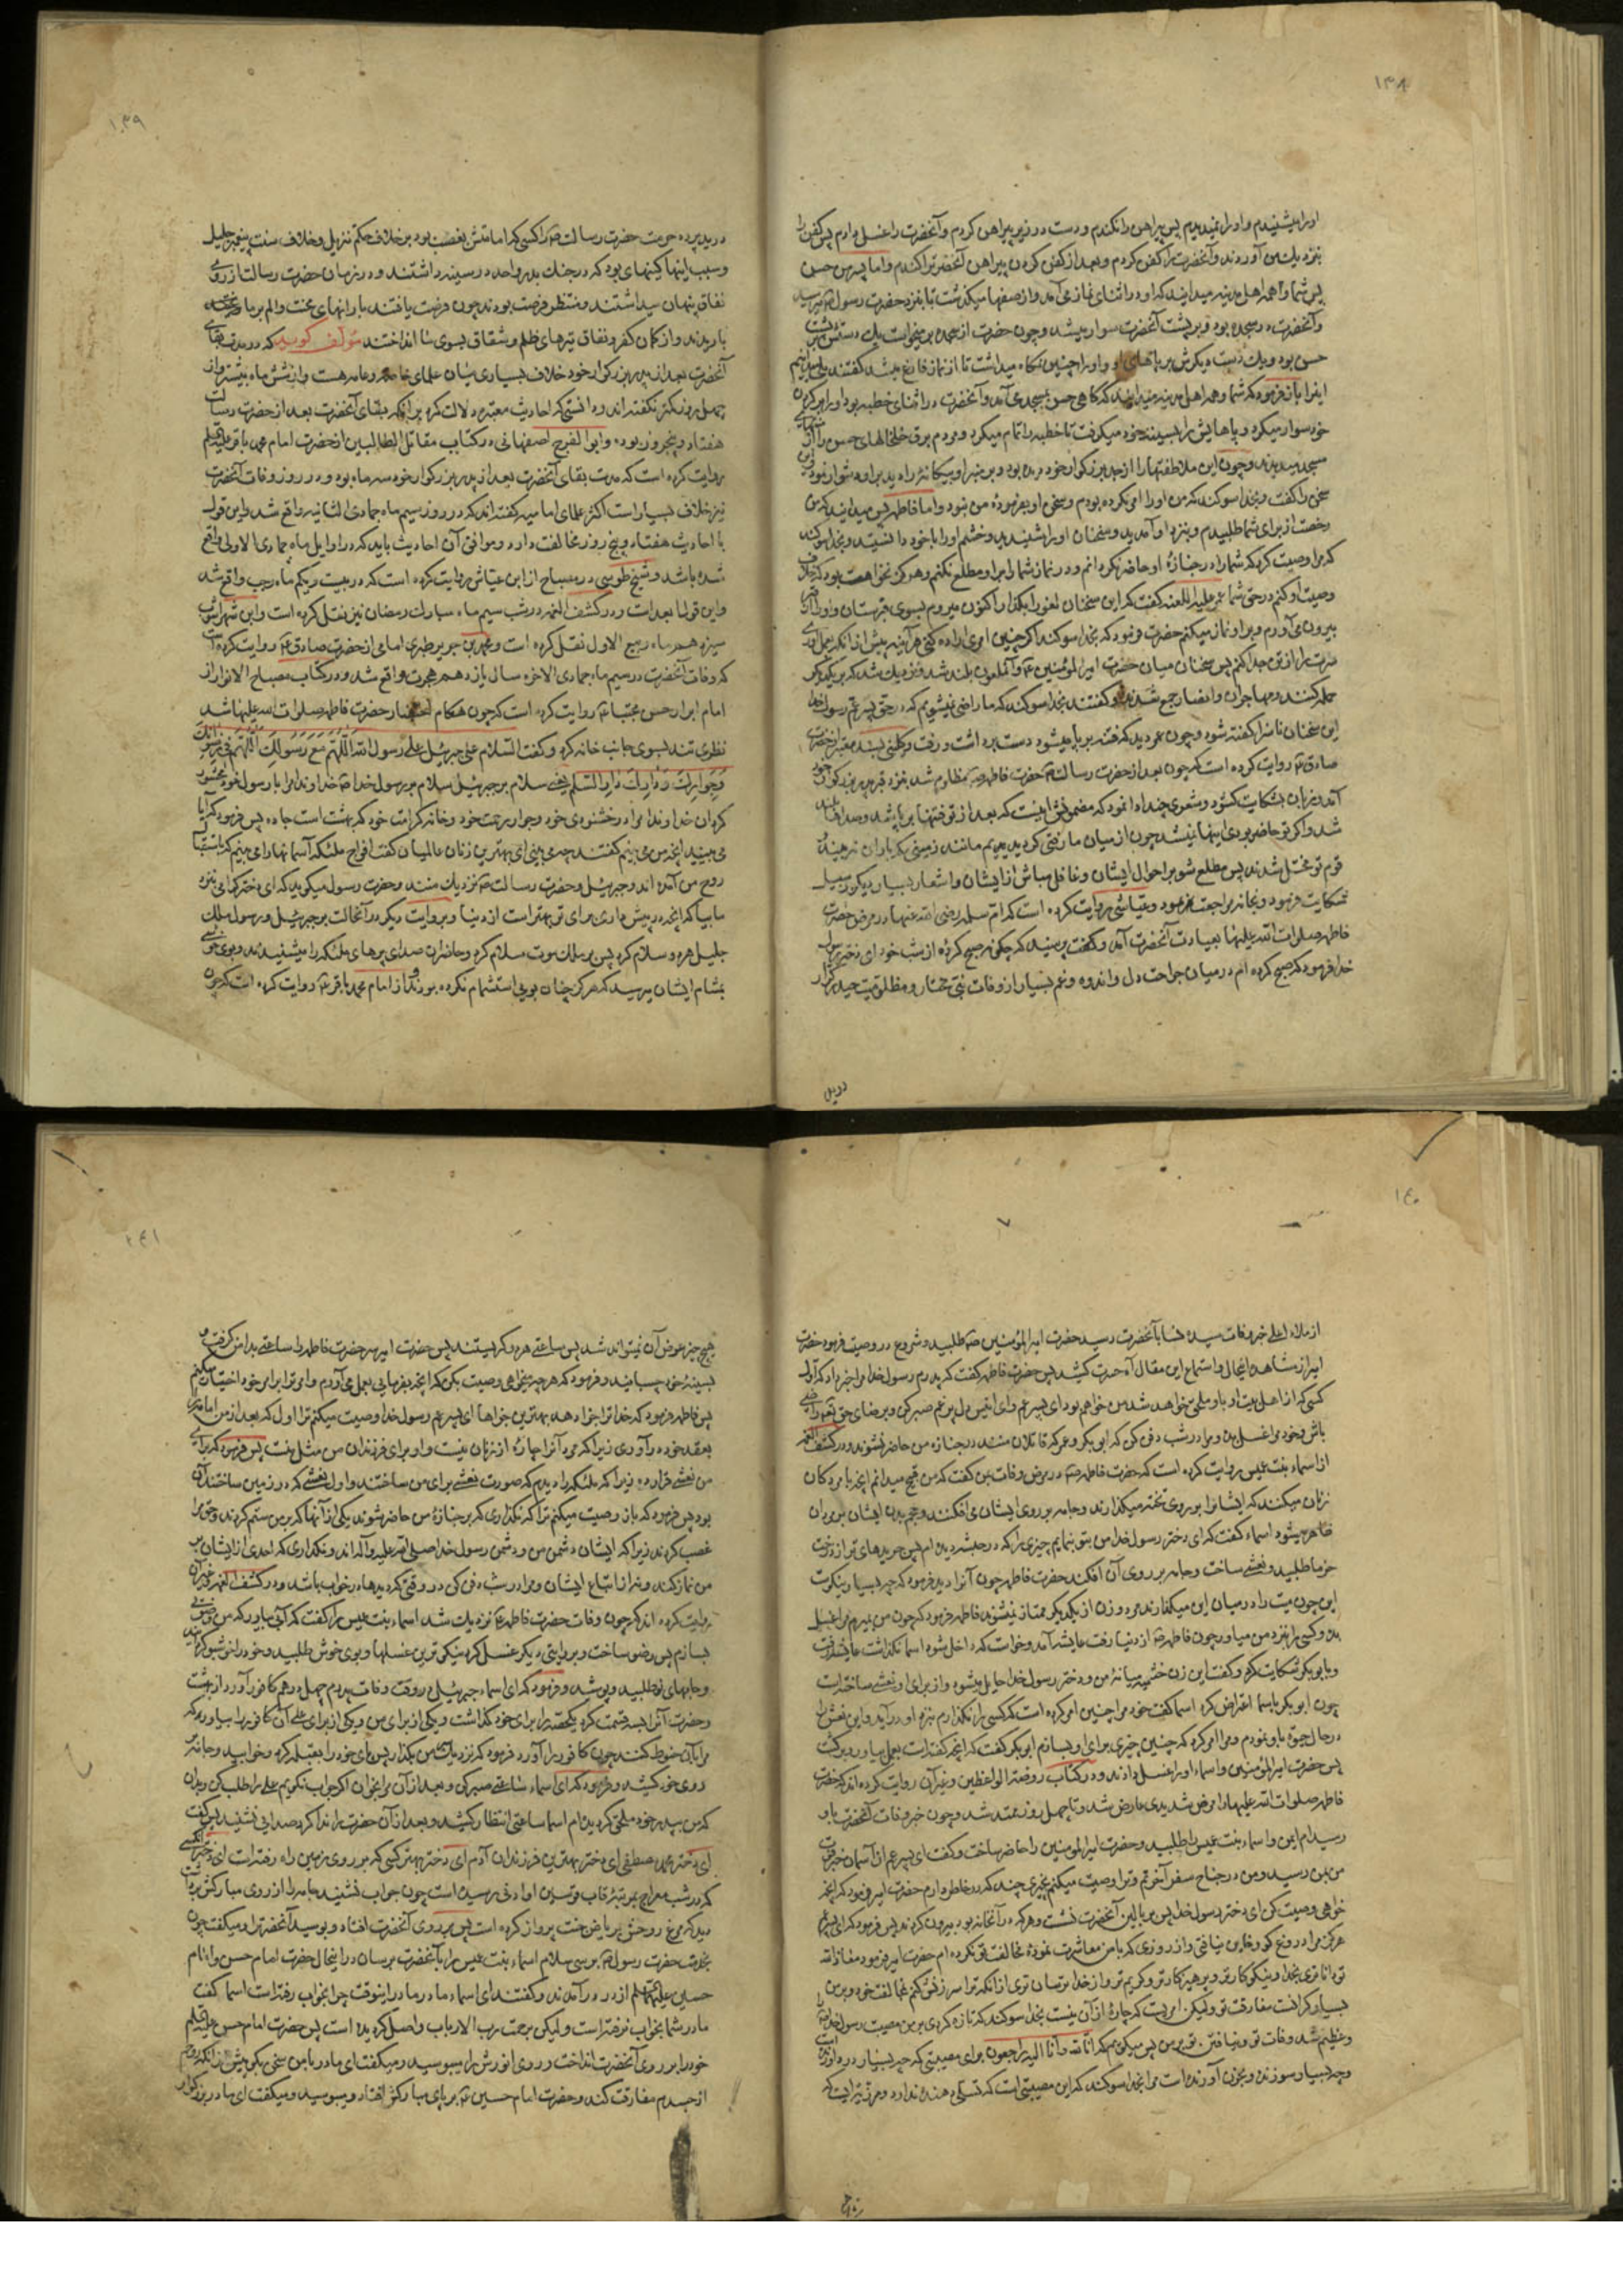 ١٣٨
او را میشنیدم و او را نمیدیدم پس پیراهن را نکندم و دست در زیر پیراهن کردم و آنحضرت را غسل دادم پس کفن را
بنزدیک من آوردند و آنحضرت را کفن کردم و بعد از کفن کردن پیراهن آنحضرت را کندم و اما پسر من حسن
پس شما و همه اهل مدینه میدانید که او در اثنای نماز می آمد و از صفها میگذشت تا بنزد حضرت رسول
و آنحضرت در سجده بود و بر پشت آنحضرت سوار میشد و چون حضرت از سجده بر میخواست یک دستش بر پشت
حسن بود و یک دست دیگرش بر پاهای او و او را چنین نگاه میداشت تا از نماز فارغ میشد گفتند بلی میدانیم
باز فرمود که شما و همه اهل مدینه میدانید که گاهی حسن بمسجد می آمد و آنحضرت در اثنای خطبه بود او را بر گردن
خود سوار میکرد و پاهایش را بسینه خود میگرفت تا خطبه را تمام میکرد و مردم برق خلخالهای حسن را از
مسجد میدیدند و چون این ملاطفتها را از جد بزرگوار خود دیده بود و بر منبر او بیگانه را دید بر او دشوار نمود
سخن را گفت و بخدا سوگند که من او را امر نکرده بودم و سخن او بفرموده من نبود و اما فاطمه پس میدانید که من
رخصت از برای شما طلبیدم و بنزد او آمدید و سخنان او را شنیدید و خشم او را با خود دانستید و بخدا سوگند
که مرا وصیت کرد که شما را در جنازه او حاضر نگردانم و در نماز شما را بر او مطلع نکنم و هرگز نخواهد بود که خلاف
وصیت او کنم در حق شما عمر علیه اللعنه گفت که این سخنان لغو را بگذار اکنون میروم بسوی قبرستان و او را از قبر
بیرون می آورم و بر او نماز میکنم حضرت فرمود که بخدا سوگند اگر چنین امری اراده کنی هرآینه پیش از آنکه بعمل آوری
سرت را از تن جدا کنم پس سخنان میان حضرت امیر المؤمنین و آن ملعون بلند شد و نزدیک شد که بر یکدیگر
حمله کنند و مهاجران و انصار جمع شدند و گفتند بخدا سوگند که ما راضی نمیشویم که در حق پسر عم رسول خدا
این سخنان ناسزا گفته شود و چون عمر دید که فتنه بر پا میشود دست برداشت و رفت و کلینی بسند معتبر از حضرت
صادق روایت کرده است که چون بعد از حضرت رسالت حضرت فاطمه مظلوم شد بنزد قبر پدر بزرگوار خود
آمد و زبان بشکایت گشود و شعری چند ادا نمود که مضمونش اینست که بعد از تو فتنها بر پا شد و صداها بلند
شد و اگر تو حاضر بودی اینها نمیشد چون از میان ما رفتی گردیدیم مانند زمینی که باران نبیند
قوم تو مختل شدند پس مطلع شو بر احوال ایشان و غافل مباش از ایشان و اشعار بسیار دیگر بر سبیل
شکایت فرمود و بخانه مراجعت فرمود و عیاشی روایت کرده است که ام سلمه رضی الله عنها در مرض حضرت
فاطمه صلوات الله علیها بعیادت آنحضرت آمد و گفت که چگونه صبح کرده از شب خود ای دختر رسول
خدا فرمود که صبح کرده ام در میان جراحت دل و اندوه و غم بسیار از وفات نبی مختار و مظلومیت حیدر کرار
١٣٩
دریده پرده حرمت حضرت رسالت را کسی که امامتش بغصب بود بر خلاف حکم تنزیل و خلاف سنت پیغمبر جلیل
و سبب اینها کینهای بود که در جنگ بدر و احد در سینه داشتند و در زمان حضرت رسالت از روی
نفاق پنهان میداشتند و منتظر فرصت بودند چون فرصت یافتند بارانهای محنت و الم بر ما
باریدند و از کمان کفر و نفاق تیرهای ظلم و شقاق بسوی ما انداختند مؤلف گوید که در مدت بقای
آنحضرت بعد از پدر بزرگوار خود خلاف بسیاری میان علمای خاصه و عامه هست و از شش ماه بیشتر و از
چهل روز کمتر نگفته اند و دانستی که احادیث معتبره دلالت کرد بر آنکه بقای آنحضرت بعد از حضرت رسالت
هفتاد و پنج روز بود و ابو الفرج اصفهانی در کتاب مقاتل الطالبین از حضرت امام محمد باقر
روایت کرده است که مدت بقای آنحضرت بعد از پدر بزرگوار خود سه ماه بود و در روز وفات آنحضرت
نیز خلاف بسیار است اکثر علمای امامیه گفته اند که در روز سیم ماه جمادی الثانیه واقع شد و این قول
با احادیث هفتاد و پنج روز مخالفت دارد و موافق آن احادیث باید که در اوایل ماه جمادی الاولی واقع
شده باشد و شیخ طوسی در مصباح از ابن عیاش روایت کرده است که در بیست و یکم ماه رجب واقع شد
و این قولها بعید است و در کشف الغمه در شب سیم ماه مبارک رمضان نیز نقل کرده است و ابن شهرآشوب
سیزدهم ماه ربیع الاول نقل کرده است و محمد بن جریر طبری امامی از حضرت صادق روایت کرده است
که وفات آنحضرت در سیم ماه جمادی الاخره سال یازدهم هجرت واقع شد و در کتاب مصباح الانوار از
امام ابرار حسن مجتبا روایت کرده است که چون هنگام احتضار حضرت فاطمه صلوات الله علیها شد
نظری تند بسوی جانب خانه کرد و گفت السلام علی جبرئیل السلام علی رسول الله اللهم مع رسولک اللهم فی رضوانک
و جوارک و دارک دار السلام یعنی سلام بر جبرئیل سلام بر رسول خدا خداوندا مرا با رسول خود محشور
گردان خداوندا مرا در خشنودی خود و جوار رحمت خود و خانه کرامت خود که بهشت است جا ده پس فرمود که آیا
می بینید آنچه من می بینم گفتند چه می بینی ای بهترین زنان عالمیان گفت افواج ملئکه آسمانها را می بینم که باستقبال
روح من آمده اند و جبرئیل و حضرت رسالت نزدیک منند و حضرت رسول میگوید که ای دختر گرامی بنزد
ما بیا که آنچه در پیش داری برای تو بهتر است از دنیا و بروایت دیگر در آنحالت بر جبرئیل و رسول ملک
جلیل سلام کرد پس بر ملک موت سلام کرد و حاضران صدای پرهای ملئکه را میشنیدند و بوی خوشی
بمشام ایشان میرسید که هرگز چنان بویی استشمام نکرده بودند از امام محمد باقر روایت کرده است که چون
دریده
١٤٠
از ملاء اعلی خبر وفات سیده نسا بآنحضرت رسید حضرت امیر المؤمنین طلبید و شروع در وصیت فرمود حضرت
امیر از مشاهده اینحال و استماع این مقال آه حسرت کشید پس حضرت فاطمه گفت که پدرم رسول خدا مرا خبر داد که اول
کسی که از اهل بیت او باو ملحق خواهد شد من خواهم بود ای پسر عم و ای انیس دل پر غم صبر کن و برضای حق تعالی راضی
باش و خود مرا غسل بده و مرا در شب دفن کن که ابو بکر و عمر که قاتلان منند در جنازه من حاضر نشوند و در کشف الغمه
از اسماء بنت عمیس روایت کرده است که حضرت فاطمه در مرض وفات بمن گفت که من قبیح میدانم آنچه با مردگان
زنان میکنند که ایشانرا بر روی تخته میگذارند و جامه بر روی ایشان می افکنند و حجم بدن ایشان بر مردان
ظاهر میشود اسماء گفت که ای دختر رسول خدا من بتو بنمایم چیزی را که در حبشه دیده ام پس جریدهای تر از درخت
خرما طلبید و نعشی ساخت و جامه بر روی آن افکند حضرت فاطمه چون آنرا دید فرمود که چه بسیار نیکوست
این چون میت را در میان این میگذارند مرد و زن از یکدیگر ممتاز نمیشوند فاطمه فرمود که چون من بمیرم مرا غسل
بده و کسی را بنزد من میاور چون فاطمه از دنیا رفت عایشه آمد و خواست که داخل شود اسما نگذاشت عایشه رفت
و با ابو بکر شکایت کرد و گفت این زن خثعمیه میانه من و دختر رسول خدا حایل میشود و از برای او نعشی ساخته است
چون ابو بکر باسما اعتراض کرد اسما گفت خود مرا چنین امر کرده است که کسی را نگذارم بنزد او در آید و این نعش را
در حال حیوة باو نمودم و مرا امر کرد که چنین چیزی برای او بسازم ابو بکر گفت که آنچه گفته است بعمل بیاور و برگشت
پس حضرت امیر المؤمنین و اسماء او را غسل دادند و در کتاب روضة الواعظین و غیر آن روایت کرده اند که حضرت
فاطمه صلوات الله علیها را مرض شدیدی عارض شد و تا چهل روز ممتد شد و چون خبر وفات آنحضرت باو
رسید ام ایمن و اسماء بنت عمیس را طلبید و حضرت امیر المؤمنین را حاضر ساخت و گفت ای پسر عم از آسمان خبر فوت
من بمن رسید و من در جناح سفر آخرتم و ترا وصیت میکنم بچیزی چند که در خاطر دارم حضرت امیر فرمود که آنچه
خواهی وصیت کن ای دختر رسول خدا پس بر بالین آنحضرت نشست و هر که در آنخانه بود بیرون کردند پس فرمود که ای پسر عم
هرگز مرا دروغ گو و خاین نیافتی و از روزی که با من معاشرت نموده مخالفت تو نکرده ام حضرت امیر فرمود معاذ الله
تو داناتری بخدا و نیکوکارتر و پرهیزکارتر و کریم تر و از خدا ترسان تری از آنکه ترا سرزنش کنم بمخالفت خود و بر من
بسیار گرانست مفارقت تو و لیکن امریست که چاره از آن نیست بخدا سوگند که تازه کردی بر من مصیبت رسول خدا را
و عظیم شد وفات تو و نیافتن تو بر من پس میگویم که انا لله و انا الیه راجعون برای مصیبتی که چه بسیار درد آورنده است
و چه بسیار سوزنده و بحزن آورنده است مرا بخدا سوگند که این مصیبتی است که تسلی دهنده ندارد و مرزئیه ایست که
١٤١
هیچ چیز عوض آن نمیتواند شد پس ساعتی هر دو گریستند پس حضرت امیر سر حضرت فاطمه را ساعتی بدامن گرفت و
بسینه خود چسبانید و فرمود که هر چه میخواهی وصیت بکن که آنچه بفرمایی بعمل می آورم و امر ترا بر امر خود اختیار میکنم
پس فاطمه فرمود که خدا ترا جزا دهد بهترین جزاها ای پسر عم رسول خدا وصیت میکنم ترا اول که بعد از من امامه را
بعقد خود در آوری زیرا که مرد آنرا چاره از زنان نیست و او برای فرزندان من مثل منست پس فرمود که برای
من نعشی قرار ده زیرا که ملئکه را دیدم که صورت نعشی برای من ساختند و اول نعشی که در زمین ساختند آن
بود پس فرمود که باز وصیت میکنم ترا که نگذاری که بر جنازه من حاضر شوند یکی از آنها که بر من ستم کردند و حق مرا
غصب کردند زیرا که ایشان دشمن من و دشمن رسول خدا صلی الله علیه و آله اند و نگذاری که احدی از ایشان بر
من نماز کند و نه از اتباع ایشان و مرا در شب دفن کن در وقتی که دیدها در خواب باشد و در کشف الغمه و غیر آن
روایت کرده اند که چون وفات حضرت فاطمه نزدیک شد اسماء بنت عمیس را گفت که آبی بیاور که من وضوئی
بسازم پس وضو ساخت و بروایتی دیگر غسل کرد نیکوترین غسلها و بوی خوش طلبید و خود را خوشبو گردانید
و جامهای نو طلبید و پوشید و فرمود که ای اسماء جبرئیل در وقت وفات پدرم چهل درهم کافور آورد از بهشت
و حضرت آنرا بسه قسمت کرد یکحصه را برای خود گذاشت و یکی از برای من و یکی از برای علی آن کافور را بیاور که
مرا بآن حنوط کنند چون کافور را آورد فرمود که نزدیک من بگذار پس پای خود را بقبله کرد و خوابید و جامه بر
روی خود کشید و فرمود که ای اسماء ساعتی صبر کن و بعد از آن مرا بخوان اگر جواب نگویم علی را طلب کن و بدان
که من بپدر خود ملحق گردیده ام اسما ساعتی انتظار کشید و بعد از آن حضرت را ندا کرد صدایی نشنید پس گفت
ای دختر محمد مصطفی ای دختر بهترین فرزندان آدم ای دختر بهتر کسی که بر روی زمین راه رفته است ای دختر آنکسی
که در شب معراج بمرتبه قاب قوسین او ادنی رسیده است چون جواب نشنید جامه را از روی مبارکش برداشت
دید که مرغ روحش بریاض جنت پرواز کرده است پس بر روی آنحضرت افتاد و بوسید آنحضرت را و میگفت چون
بخدمت حضرت رسول برسی سلام اسماء بنت عمیس را بآنحضرت برسان در اینحال حضرت امام حسن و امام
حسین علیهما السلام از در در آمدند و گفتند ای اسماء مادر ما در اینوقت چرا بخواب رفته است اسما گفت
مادر شما بخواب نرفته است و لیکن برحمت رب الارباب واصل گردیده است پس حضرت امام حسن علیه السلام
خود را بر روی آنحضرت انداخت و روی انورش را میبوسید و میگفت ای مادر با من سخن بگو پیش از آنکه روحم
از جسدم مفارقت کند و حضرت امام حسین بر پای مبارکش افتاد و میبوسید و میگفت ای مادر بزرگوار